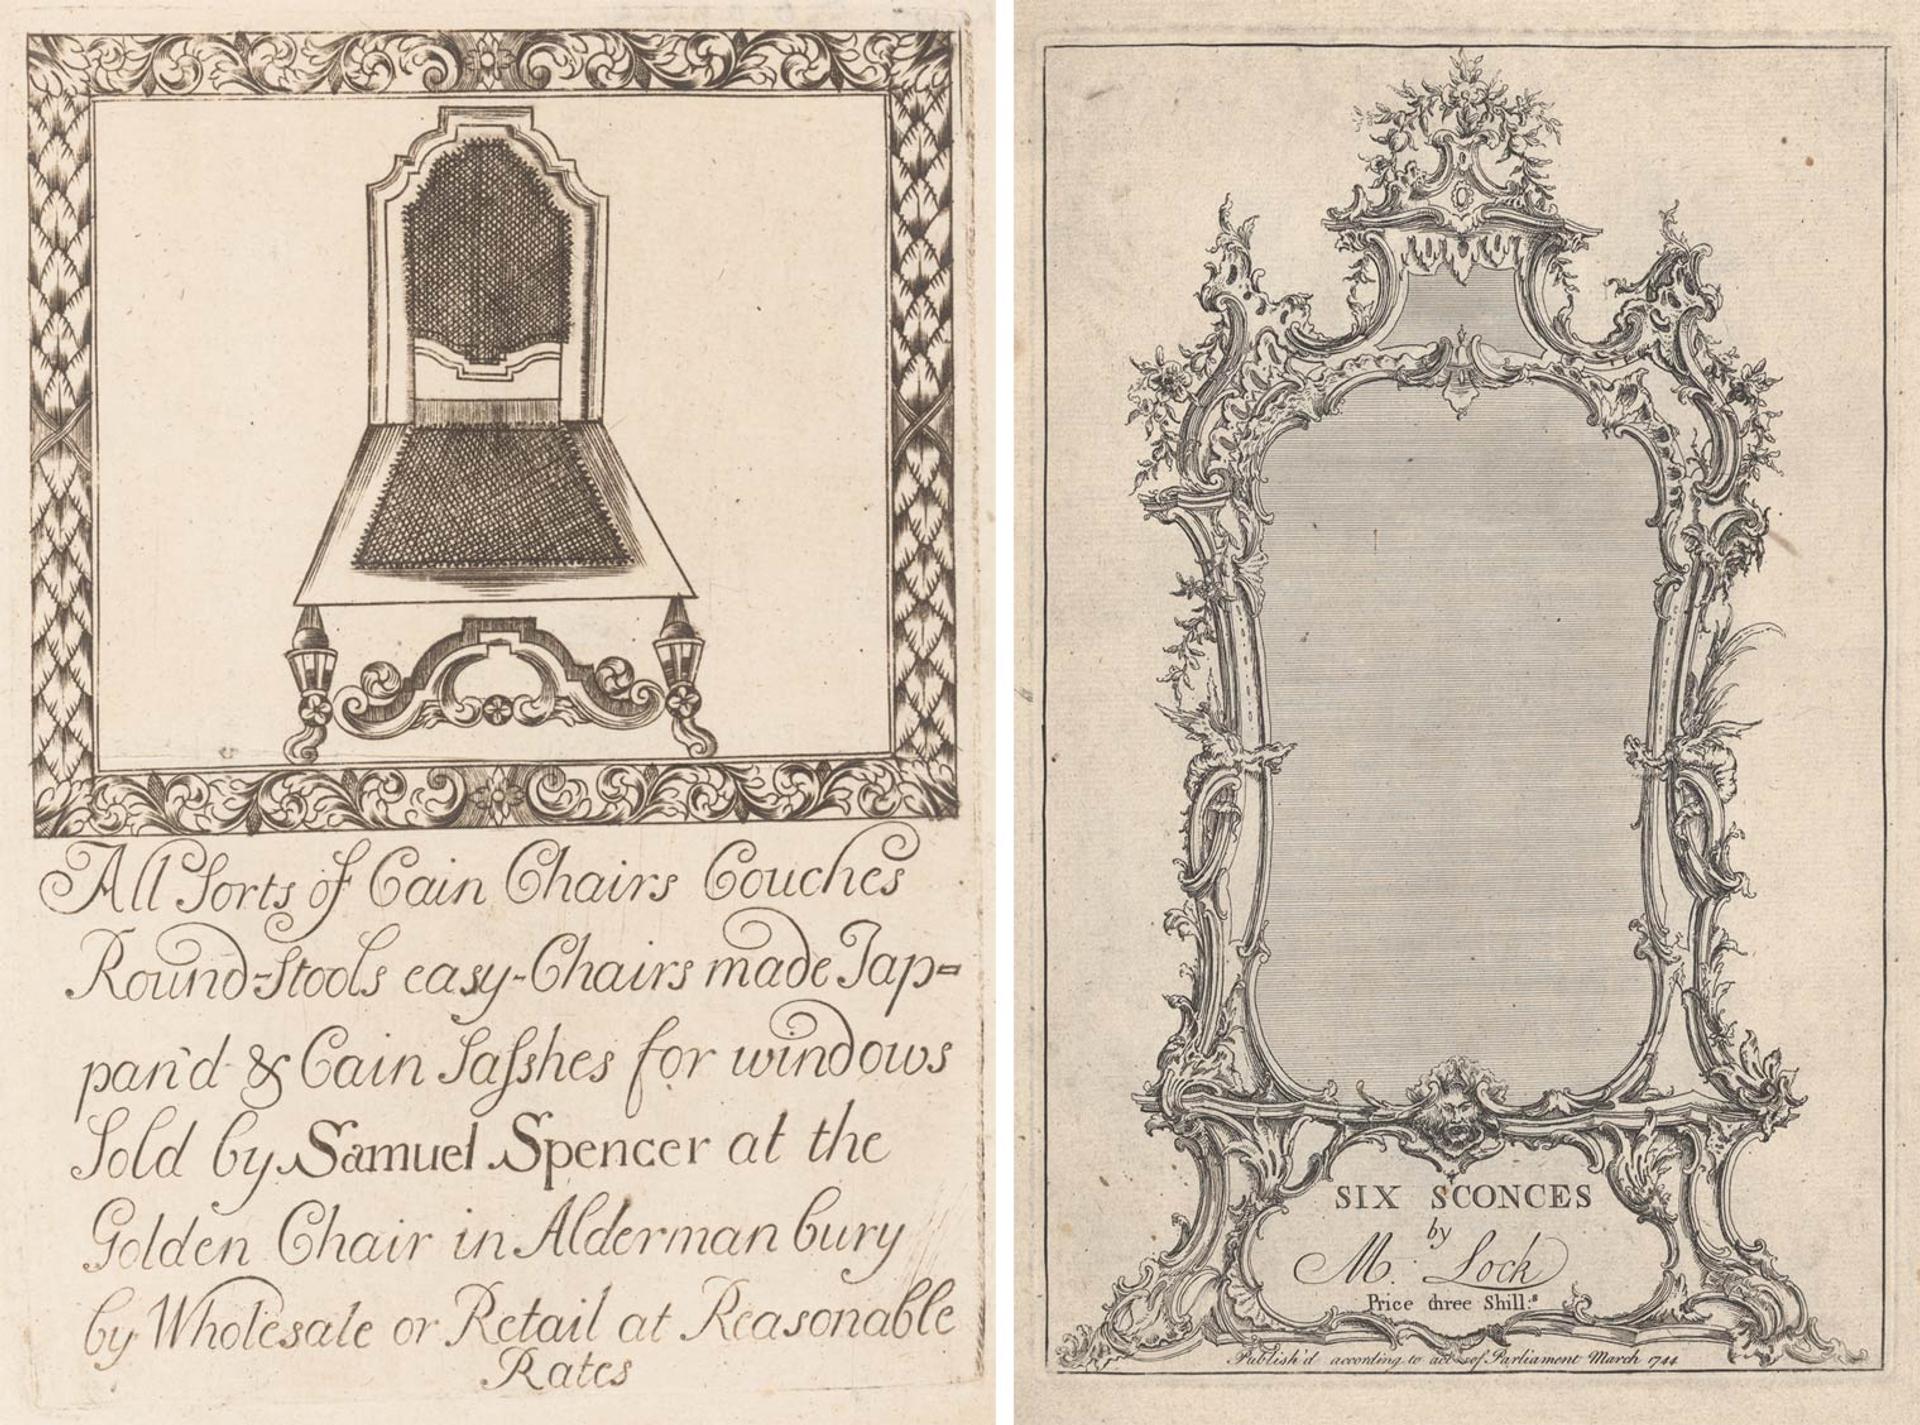 All Sorts of Cain Chairs Couches
Round-Stools easy-Chairs made Jap=
pan'd & Cain Sasshes for windows
Sold by Samuel Spencer at the
Golden Chair in Alderman bury
by Wholesale or Retail at Reasonable
Rates
SIX SCONCES
by
M. Lock
Price three Shill:s
Publish'd according to act of Parliament March 1744